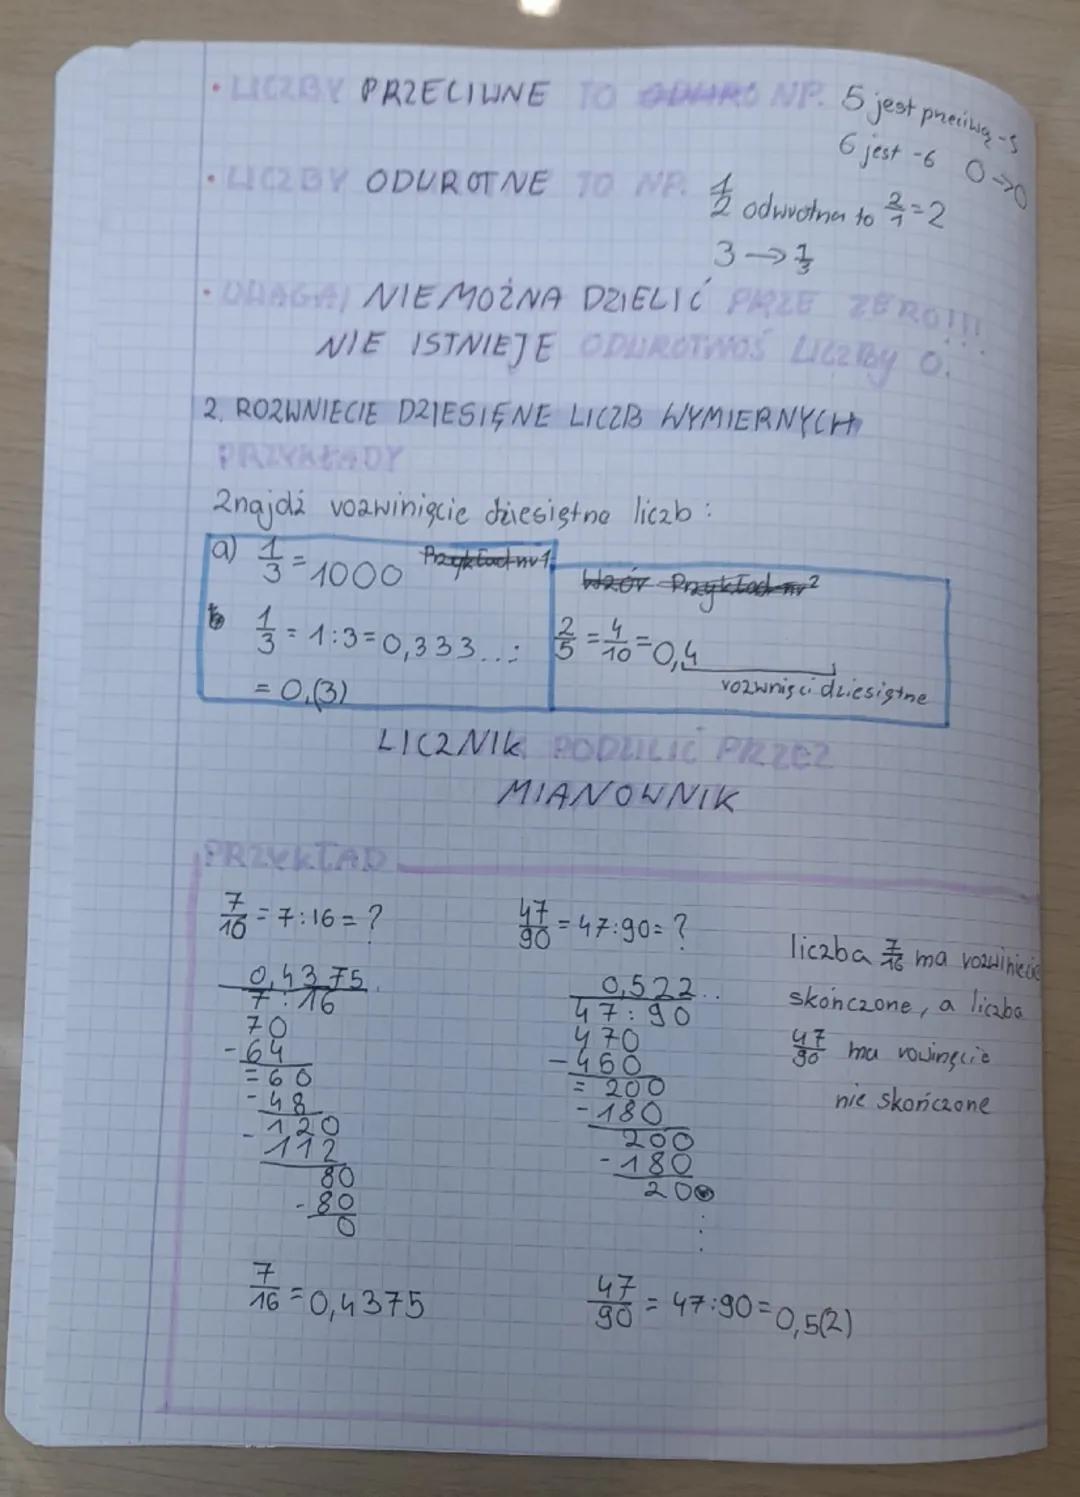 • LICZBY PRZECIWNE TO NP. 5 jest przeciwą -5
6 jest -6 0→0
• LICZBY ODWROTNE TO NP. 1/2 odwrotna to 2/1=2
3→1/3
• UWAGA! NIE MOŻNA DZIELIĆ PRZE ZERO!!!
NIE ISTNIEJE ODWROTNOŚ LICZBY 0.
2. ROZWNIECIE DZIESIĘNE LICZB WYMIERNYCH
PRZYKŁADY
Znajdź rozwinięcie dziesiętne liczb:
a) 1/3=1000 Przykład nr 1
1/3=1:3=0,333...=
=0,(3)
Wzór Przykład nr 2
2/5=4/10=0,4
rozwnięci dziesiętne
LICZNIK PODZILIĆ PRZEZ
MIANOWNIK
PRZYKŁAD
7/16=7:16=?
0,4375
7:16
70
-64
=60
-48
120
-112
80
-80
0
7/16=0,4375
47/90=47:90=?
0,522..
47:90
470
-460
=200
-180
200
-180
20
47/90=47:90=0,5(2)
liczba 7/16 ma rozwiniecie
skończone, a liczba
47/90 ma rowinęcie
nie skończone